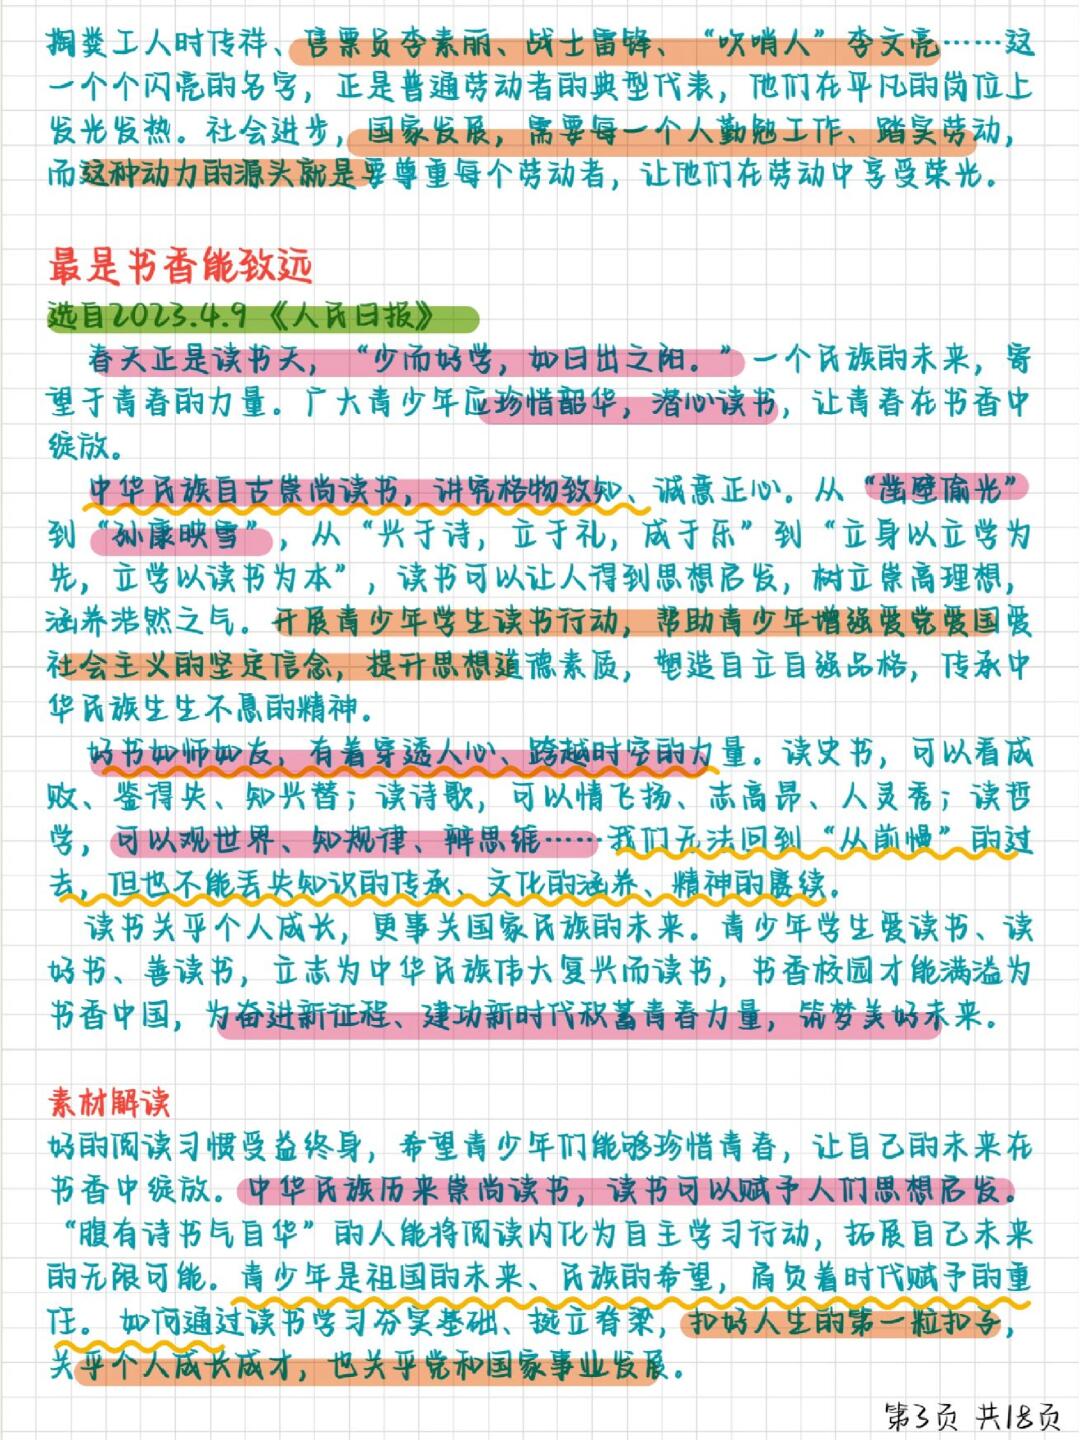 掏粪工人时传祥、售票员李素丽、战士雷锋、“吹哨人”李文亮……这
一个个闪亮的名字，正是普通劳动者的典型代表，他们在平凡的岗位上
发光发热。社会进步，国家发展，需要每一个人勤勉工作、踏实劳动，
而这种动力的源头就是要尊重每个劳动者，让他们在劳动中享受荣光。
最是书香能致远
选自2023.4.9《人民日报》
春天正是读书天，“少而好学，如日出之阳。”一个民族的未来，寄
望于青春的力量。广大青少年应珍惜韶华，潜心读书，让青春在书香中
绽放。
中华民族自古崇尚读书，讲究格物致知、诚意正心。从“凿壁偷光”
到“孙康映雪”，从“兴于诗，立于礼，成于乐”到“立身以立学为
先，立学以读书为本”，读书可以让人得到思想启发，树立崇高理想，
涵养浩然之气。开展青少年学生读书行动，帮助青少年增强爱党爱国爱
社会主义的坚定信念，提升思想道德素质，塑造自立自强品格，传承中
华民族生生不息的精神。
好书如师如友，有着穿透人心、跨越时空的力量。读史书，可以看成
败、鉴得失、知兴替；读诗歌，可以情飞扬、志高昂、人灵秀；读哲
学，可以观世界、知规律、辨思维……我们无法回到“从前慢”的过
去，但也不能丢失知识的传承、文化的涵养、精神的赓续。
读书关乎个人成长，更事关国家民族的未来。青少年学生爱读书、读
好书、善读书，立志为中华民族伟大复兴而读书，书香校园才能满溢为
书香中国，为奋进新征程、建功新时代积蓄青春力量，筑梦美好未来。
素材解读
好的阅读习惯受益终身，希望青少年们能够珍惜青春，让自己的未来在
书香中绽放。中华民族历来崇尚读书，读书可以赋予人们思想启发。
“腹有诗书气自华”的人能将阅读内化为自主学习行动，拓展自己未来
的无限可能。青少年是祖国的未来、民族的希望，肩负着时代赋予的重
任。如何通过读书学习夯实基础、挺立脊梁，扣好人生的第一粒扣子，
关乎个人成长成才，也关乎党和国家事业发展。
第3页 共18页